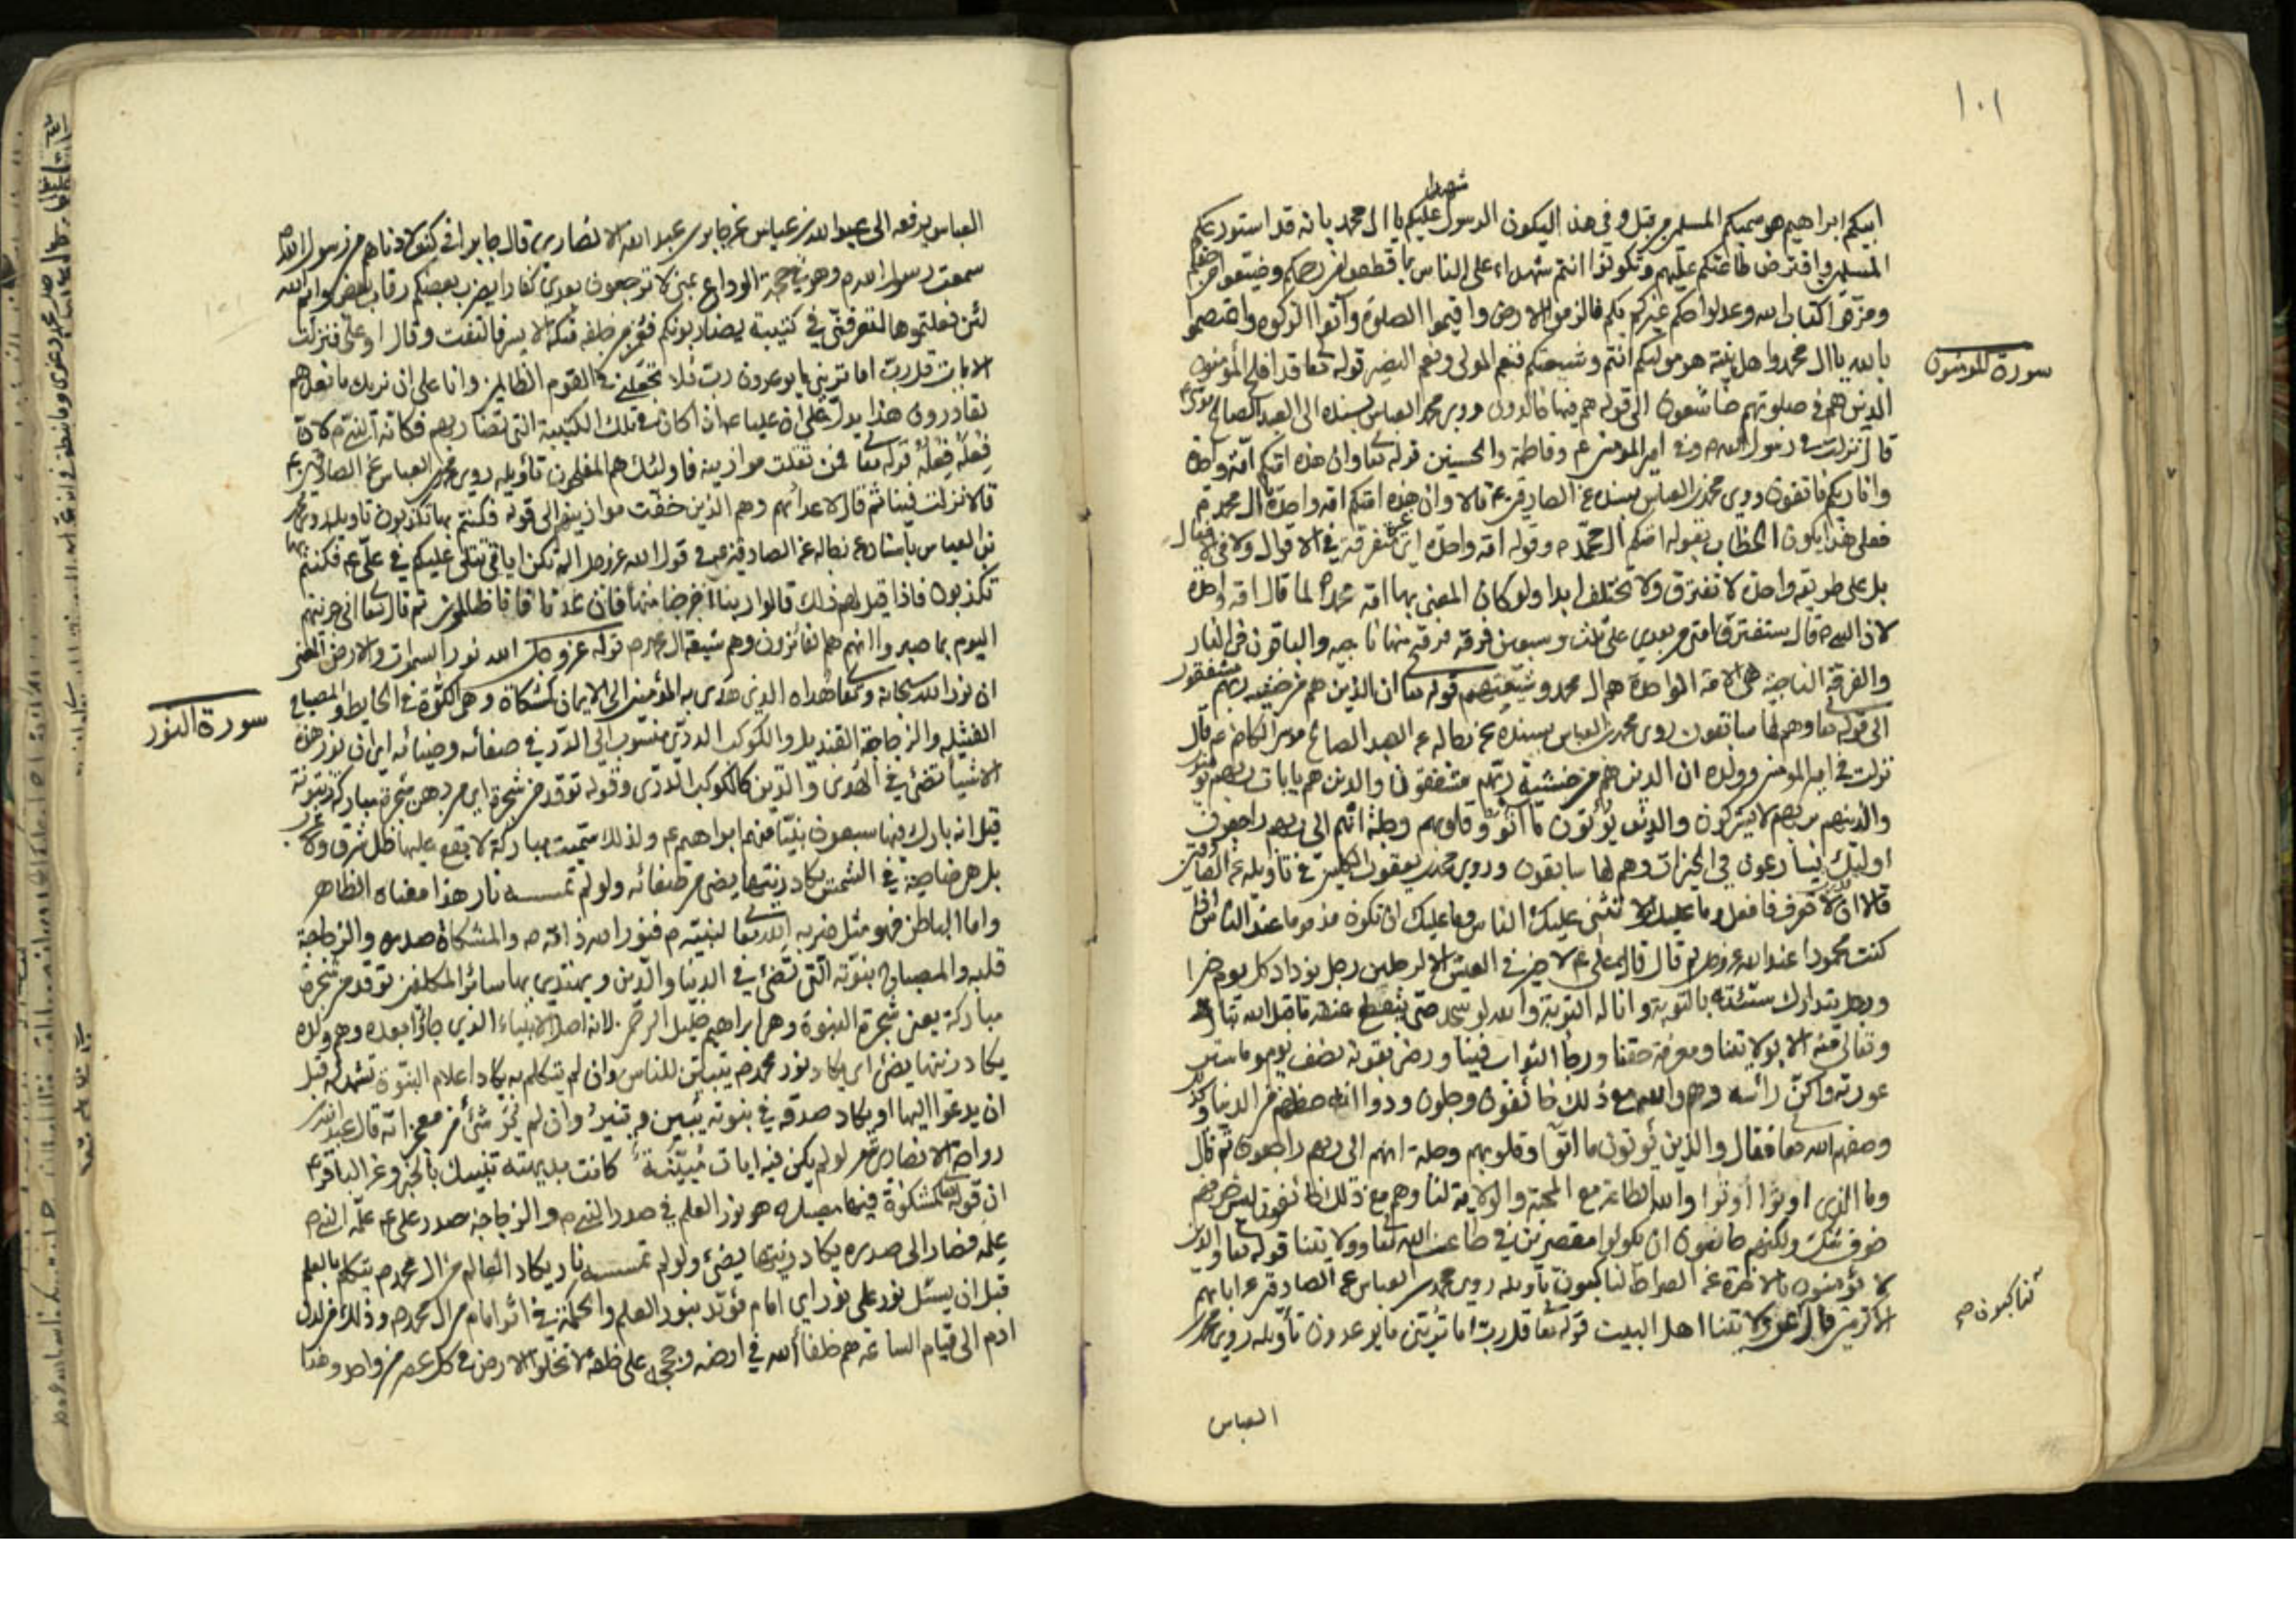 ١٠١
شهيدا
ابيكم ابراهيم هو سميكم المسلمين من قبل وفي هذا ليكون الرسول عليكم يا ال محمد يا من قد استودعكم
المسلمين وافترض طاعتكم عليهم وتكونوا انتم شهداء على الناس بما قطعوا من رحمكم وضيعوا من حقكم
ومزقوا من كتاب الله وعدلوا حكم غيركم بكم فالزموا الارض واقيموا الصلوة وآتوا الزكوة واعتصموا
بالله يا ال محمد واهل بيته هو موليكم انتم وشيعتكم فنعم المولى ونعم النصير قوله تعا قد افلح المؤمنون
سورة المؤمنون
الذين هم في صلوتهم خاشعون الى قوله هم فيها خالدون روى محمد بن العباس بسنده الى العبد الصالح موسى
قال نزلت في رسول الله ص وفي امير المؤمنين ع وفاطمة والحسنين قوله تعا وان هذه امتكم امة واحدة
وانا ربكم فاتقون روى محمد بن العباس بسنده عن الصادقين ع قالا وان هذه امتكم امة واحدة ال محمد ص
فعلى هذا يكون الخطاب بقوله امتكم ال محمد ص وقوله امة واحدة اي غير متفرقة في الاقوال ولا في الافعال
بل على طريقة واحدة لا تفترق ولا تختلف ابدا ولو كان المعنى بها امة محمد ص لما قال امة واحدة
لان النبي ص قال ستفترق امتي من بعدي على ثلث وسبعين فرقة فرقة منها ناجية والباقون في النار
والفرقة الناجية هي الامة الواحدة هم ال محمد وشيعتهم قوله تعا ان الذين هم من خشية ربهم مشفقون
الى قوله تعا وهم لها سابقون روى محمد بن العباس بسنده عن رجاله عن العبد الصالح موسى الكاظم ع قال
نزلت في امير المؤمنين وولده ان الذين هم من خشية ربهم مشفقون والذين هم بايات ربهم يؤمنون
والذين هم بربهم لا يشركون والذين يؤتون ما آتوا وقلوبهم وجلة انهم الى ربهم راجعون
اولئك يسارعون في الخيرات وهم لها سابقون وروى محمد بن يعقوب الكليني في تاويله عن الصادقين
قالا ان لا تعرف فافعل وما عليك الا تثنى عليك الناس وما عليك ان تكون مذموما عند الناس اذا
كنت محمودا عند الله عز وجل ثم قال قال علي ع لا خير في العيش الا لرجلين رجل يزداد كل يوم خيرا
ورجل يتدارك سيئته بالتوبة وانا له التوبة والله لو سجد حتى ينقطع عنقه ما قبل الله تبارك
وتعالى منه الا بولايتنا ومعرفة حقنا ورجا الثواب فينا ورضى بقوته نصف يوم وما ستر
عورته واكن رأسه وهم والله مع ذلك خائفون وجلون ودوا انه حظهم من الدنيا وكذلك
وصفهم الله تعا فقال والذين يؤتون ما آتوا وقلوبهم وجلة انهم الى ربهم راجعون ثم قال
وما الذي اوتوا أوتوا والله الطاعة مع المحبة والولاية لنا وهم مع ذلك خائفون ليس خوفهم
خوف شك ولكنهم خافوا ان يكونوا مقصرين في طاعت الله تعا وولايتنا قوله تعا وان الذين
لا يؤمنون بالاخرة عن الصراط لناكبون تأويله روى محمد بن العباس عن الصادق عن ابائهم
لناكبون ص
الاكرمين قال عن ولايتنا اهل البيت قوله تعا قل رب اما تريني ما يوعدون تأويله روى محمد بن
العباس
العباس يرفعه الى عبد الله بن عباس عن جابر بن عبد الله الانصاري قال جابر اني كنت لادناهم من رسول الله ص
سمعت رسول الله ص وهو في حجة الوداع بمنى لا ترجعون بعدي كفارا يضرب بعضكم رقاب بعض وايم الله
لئن فعلتموها لتعرفني في كتيبة يضاربونكم فغمز من خلفه منكبه الايسر فالتفت وقال او علي فنزلت
الايات قل رب اما تريني ما يوعدون رب فلا تجعلني في القوم الظالمين وانا على ان نريك ما نعدهم
لقادرون هذا يدل على ان عليا ع ان كان في تلك الكتيبة التي تضاربهم فكانه النبي ص لان
فعله فعله قوله تعا فمن ثقلت موازينه فاولئك هم المفلحون تأويله روى محمد بن العباس عن الصادقين ع
قالا نزلت فينا ثم قال لاعدائهم وهم الذين خفت موازينهم الى قوله فكنتم بها تكذبون تأويله روى محمد
بن العباس باسناده عن رجاله عن الصادقين ع في قول الله عز وجل الم تكن اياتي تتلى عليكم في علي ع فكنتم بها
تكذبون فاذا قيل لهم ذلك قالوا ربنا اخرجنا منها فان عدنا فانا ظالمون ثم قال تعا اني جزيتهم
اليوم بما صبروا انهم هم الفائزون وهم شيعة ال محمد ص قوله عز وجل الله نور السموات والارض المعنى
سورة النور
ان نور الله سبحانه وتعا هداه الذي هدى به المؤمنين الى الايمان كمشكاة وهي الكوة في الحايط والمصباح
الفتيلة والزجاجة القنديل والكوكب الدري منسوب الى الدر في صفائه وضيائه اي ان نور هذه
الاشيا تضئ في الهدى والدين كالكوكب الدري وقوله توقد من شجرة اي من دهن شجرة مباركة زيتونة
قيل انه بارك فيها سبعون نبيا منهم ابراهيم ع ولذلك سميت مباركة لا يقع عليها ظل شرق ولا غرب
بل هي ضاحية في الشمس يكاد زيتها يضئ من صفائه ولو لم تمسسه نار هذا معناه الظاهر
واما الباطن فهو مثل ضربه الله تعا لنبيه ص فنور الله ذاته ص والمشكاة صدره والزجاجة
قلبه والمصباح بنوته التي تضئ في الدنيا والدين ويهتدي بها سائر المكلفين توقد من شجرة
مباركة يعني شجرة النبوة وهي ابراهيم خليل الرحمن لانه اصل الانبياء الذي جاؤا بعده وهم ولده
يكاد زيتها يضئ اي يكاد نور محمد ص يتبين للناس وان لم يتكلم به يكاد اعلام النبوة تشهد له قبل
ان يدعوا اليها او يكاد صدقه في نبوته يتبين وينير وان لم يجئ شئ من معجزاته قال عبد الله بن
رواحة الانصاري شعر لو لم يكن فيه ايات مبينة كانت بديهته تنبيك بالخبر وعن الباقر ع
ان قوله كمشكوة فيها مصباح هو نور العلم في صدر النبي ص والزجاجة صدر علي ع علمه النبي ص
علمه فصار الى صدره يكاد زيتها يضئ ولو لم تمسسه نار يكاد العالم من ال محمد ص يتكلم بالعلم
قبل ان يسئل نور على نور اي امام مؤيد بنور العلم والحكمة في اثر امام من ال محمد ص وذلك من لدن
ادم الى قيام الساعة هم خلفاء الله في ارضه وحججه على خلقه لا تخلوا الارض في كل عصر من واحد وهذا